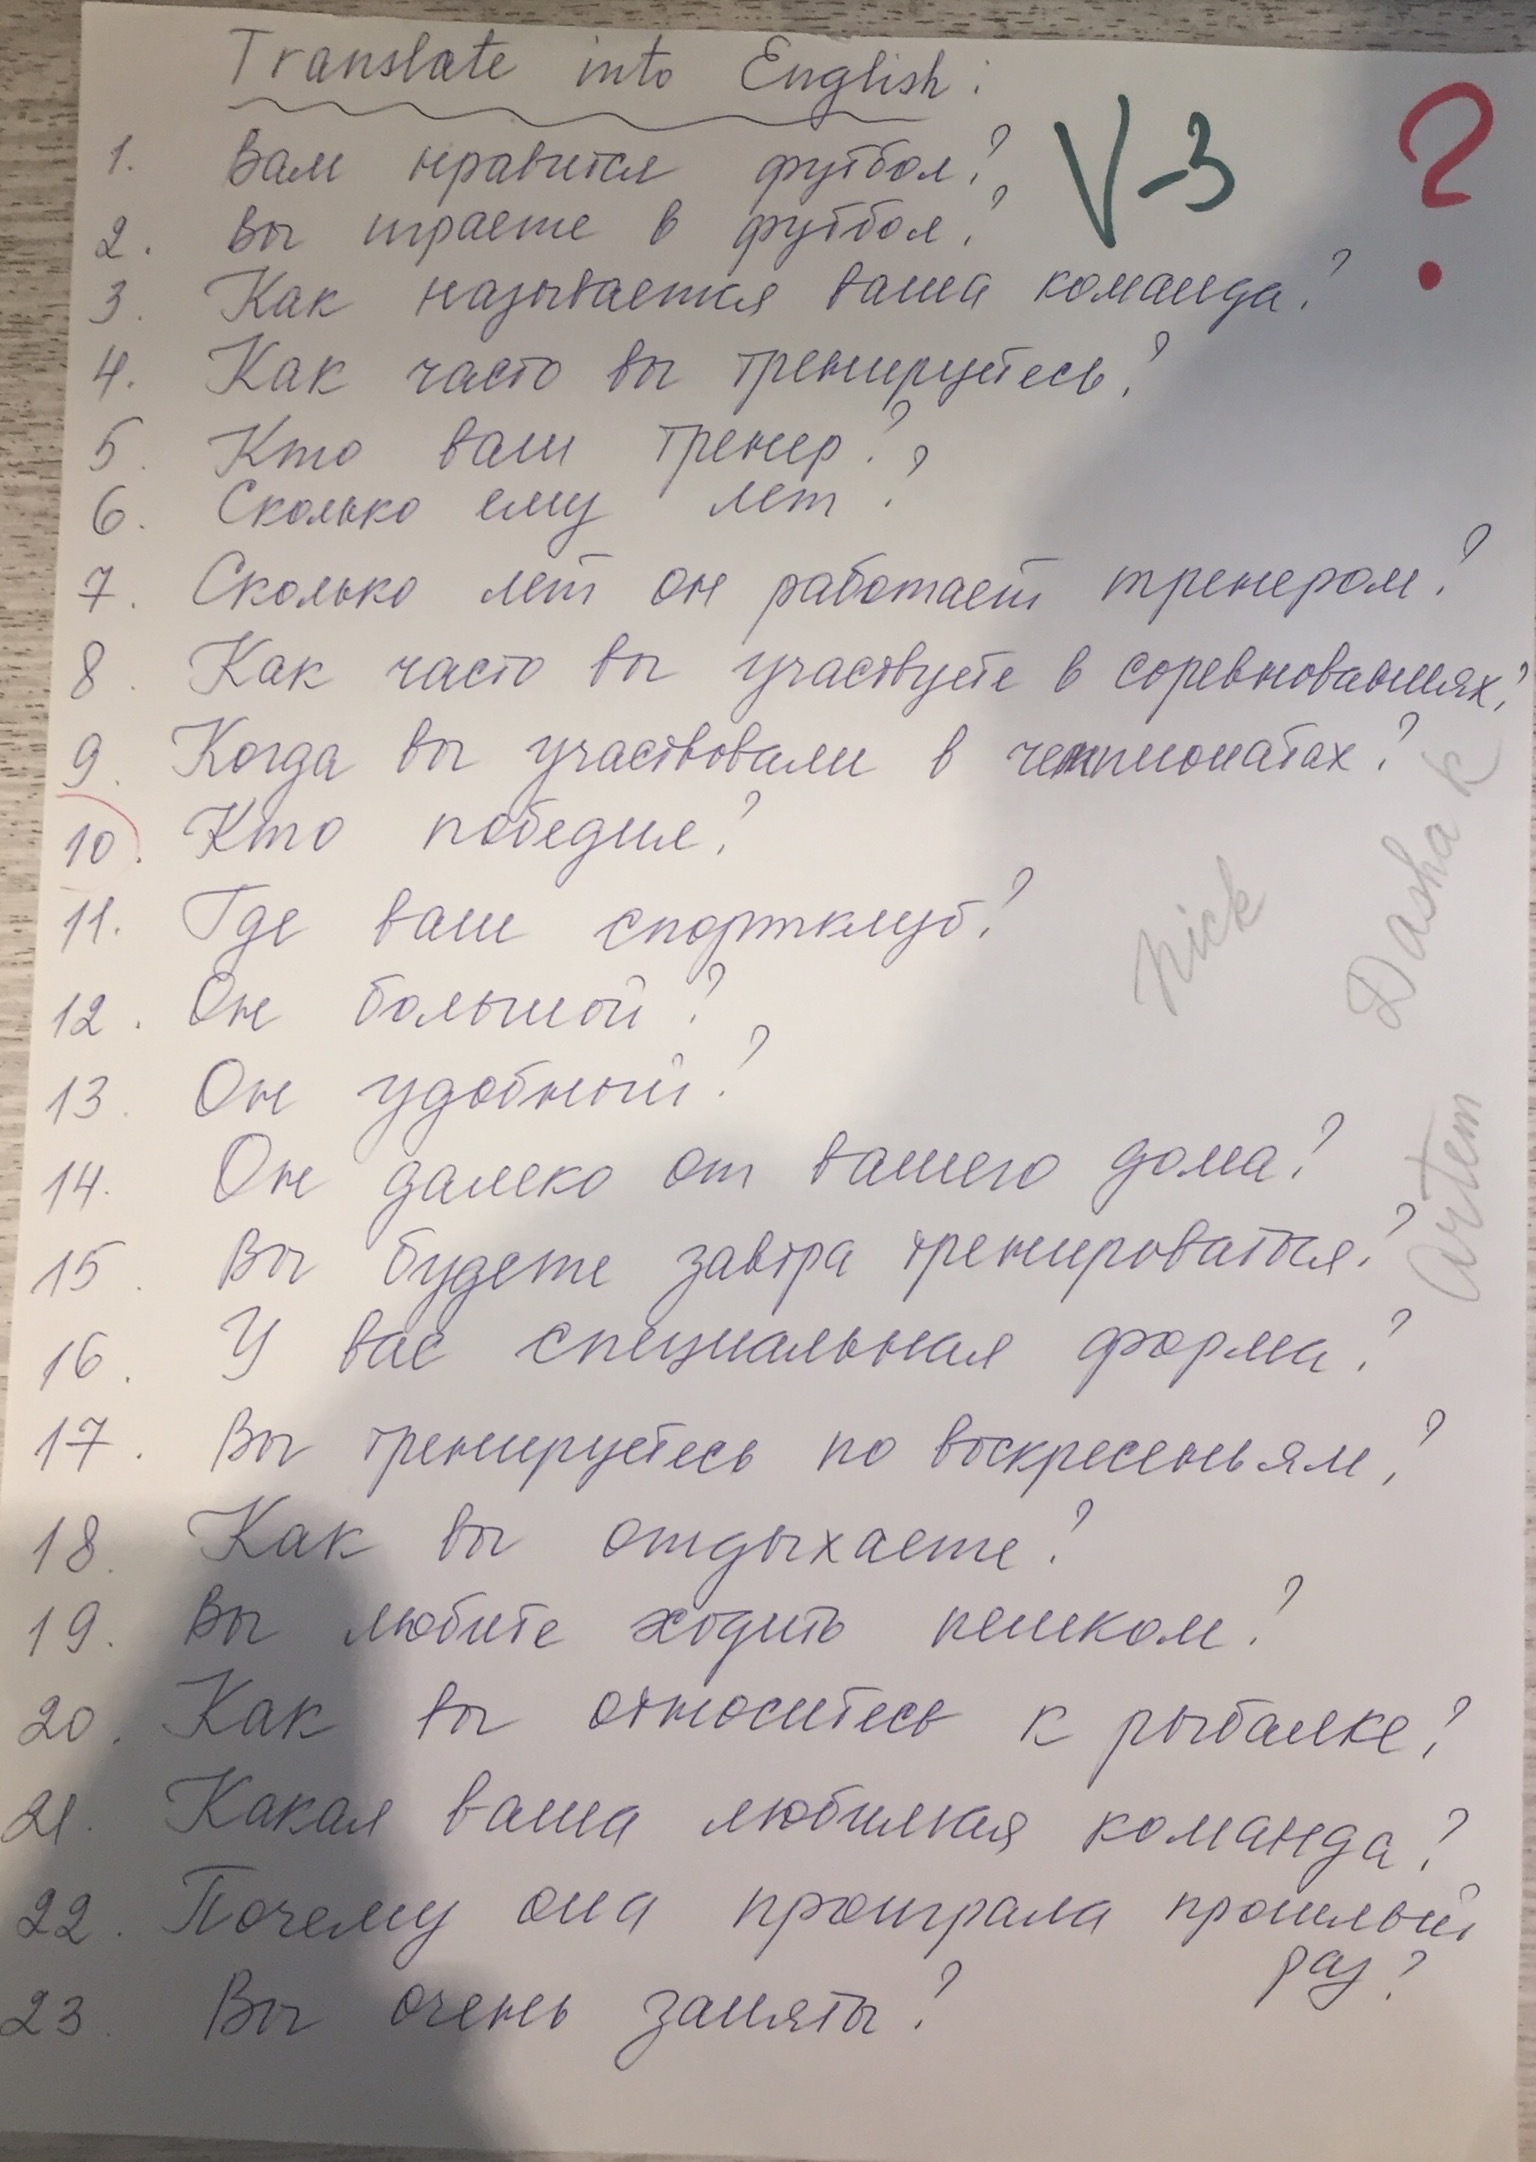 Translate into English:
V-3
?
1. Вам нравится футбол?
2. Вы играете в футбол?
3. Как называется ваша команда?
4. Как часто вы тренируетесь?
5. Кто ваш тренер?
6. Сколько ему лет?
7. Сколько лет он работает тренером?
8. Как часто вы участвуете в соревнованиях?
9. Когда вы участвовали в чемпионатах?
10. Кто победил?
11. Где ваш спортклуб?
12. Он большой?
13. Он удобный?
14. Он далеко от вашего дома?
15. Вы будете завтра тренироваться?
16. У вас специальная форма?
17. Вы тренируетесь по воскресеньям?
18. Как вы отдыхаете?
19. Вы любите ходить пешком?
20. Как вы относитесь к рыбалке?
21. Какая ваша любимая команда?
22. Почему она проиграла прошлый
раз?
23. Вы очень заняты?
Nick
Dasha K
Artem